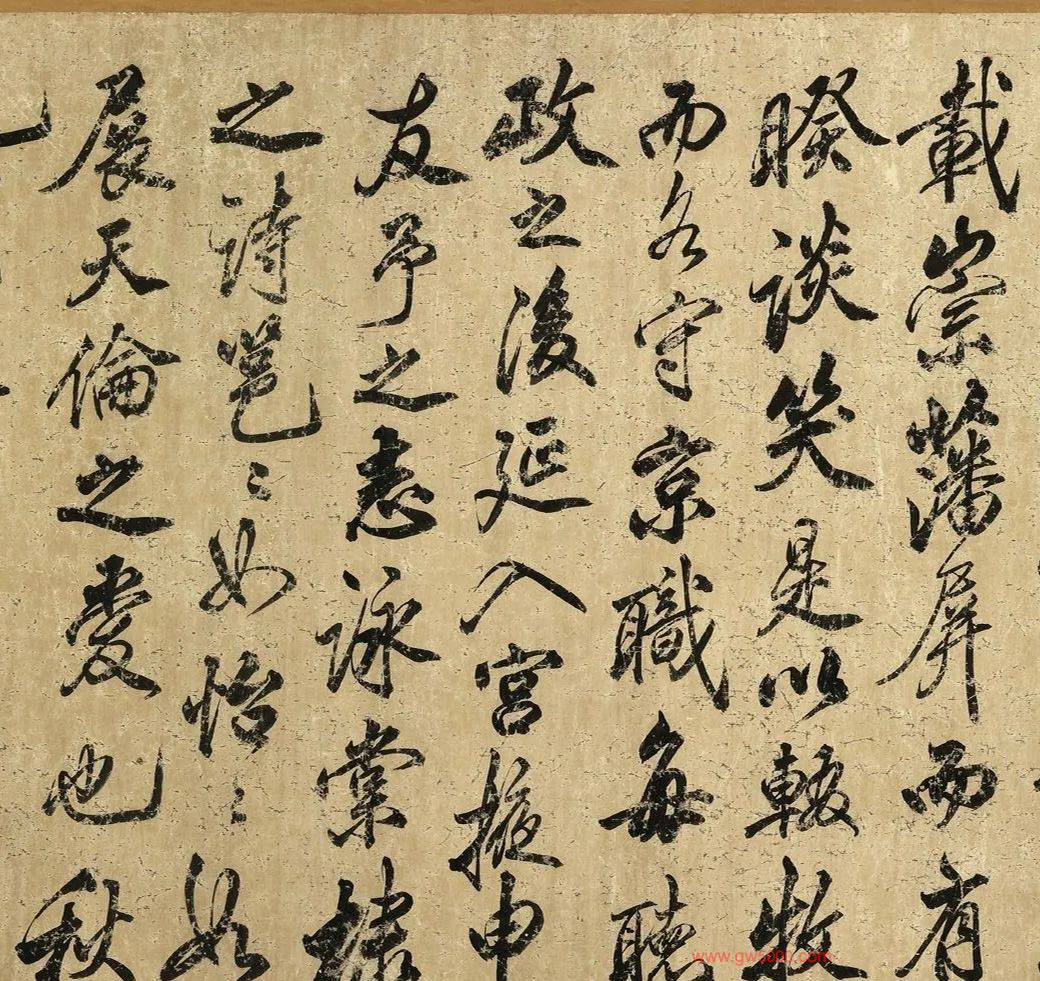 載崇藩屏而有
睽談笑是以輟牧
而各守京職每聽
政之後延入宮掖申
友于之志詠棠棣
之詩邕〻如怡〻如
展天倫之愛也秋
www.gw5000.com